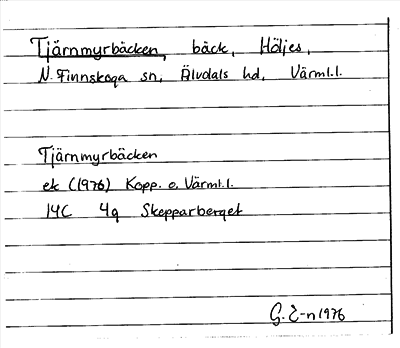 Tjärnmyrbäcken, bäck, Höljes,
N. Finnskoga sn, Älvdals hd, Värml.l.
Tjärnmyrbäcken
ek (1976) Kopp. o. Värml.l.
14C 4g Skepparberget
G. E-n 1976